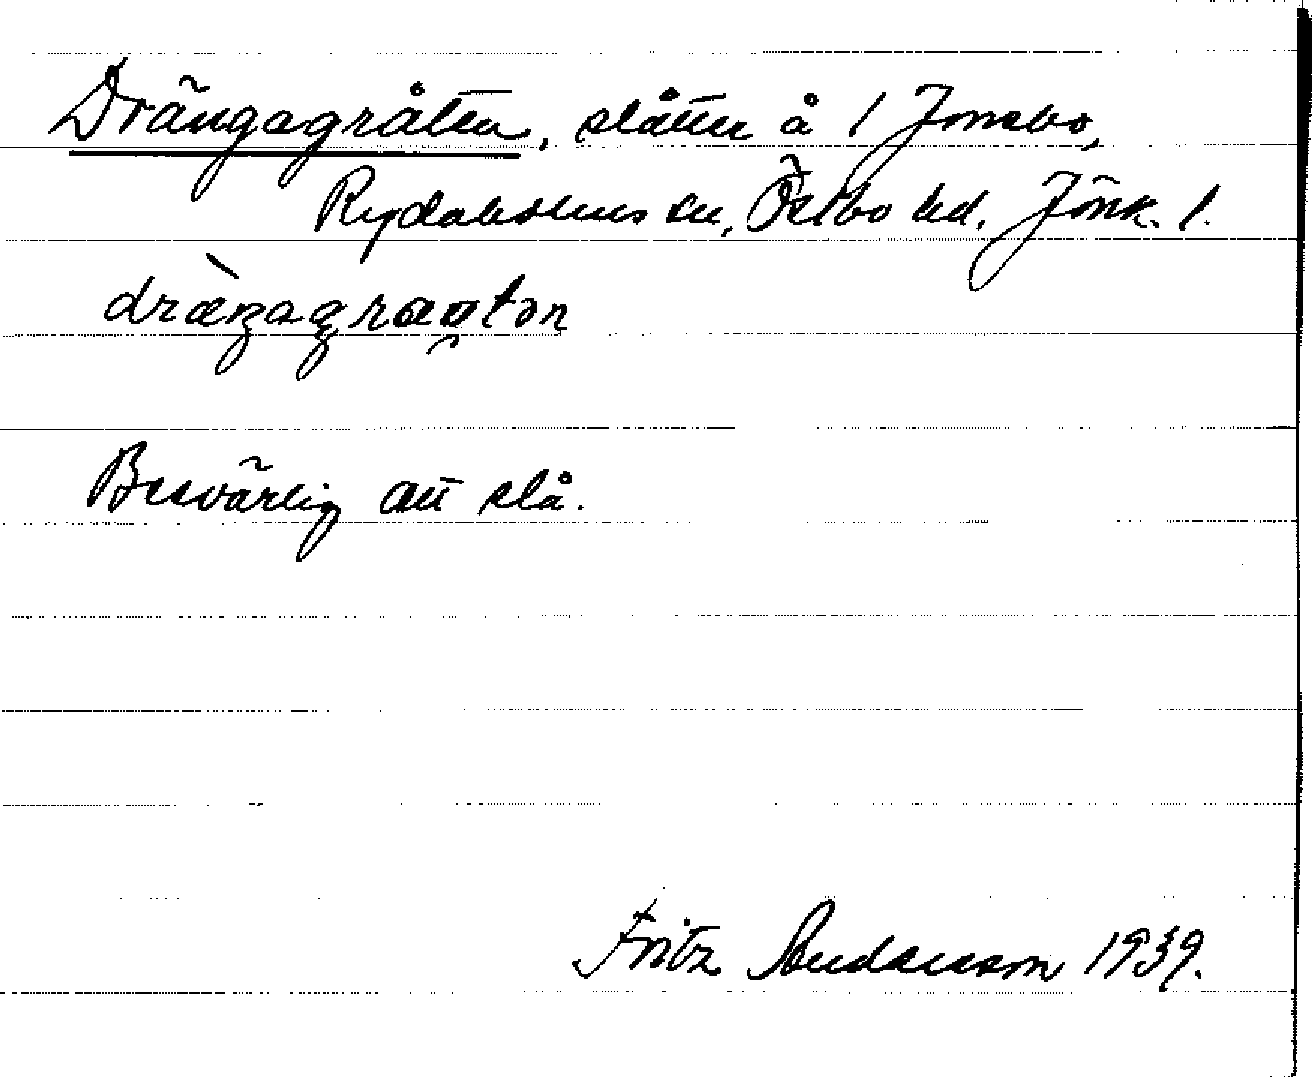 Drängagråten, slåtter å 1 Jonsbo,
Rydaholms sn, Östbo hd. Jönk. l.
dræ̀ŋagraɷ̯tən
Besvärlig att slå.
Fritz Andersson 1939.